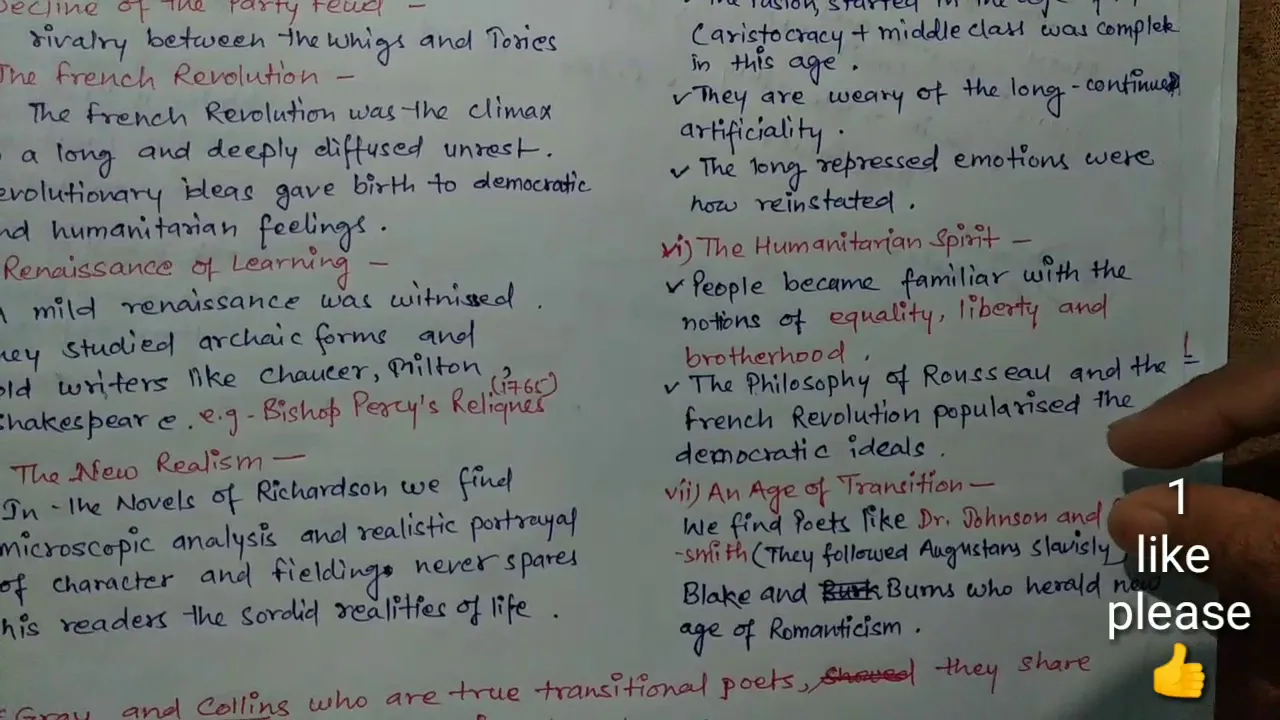 Decline of the Party Feud -
rivalry between the Whigs and Tories
The French Revolution -
The French Revolution was the climax
a long and deeply diffused unrest.
evolutionary ideas gave birth to democratic
nd humanitarian feelings.
Renaissance of Learning -
A mild renaissance was witnissed.
hey studied archaic forms and
old writers like Chaucer, Milton,
Shakespeare. e.g - Bishop Percy's Reliques (1765)
The New Realism -
In the Novels of Richardson we find
microscopic analysis and realistic portrayal
of character and fielding never spares
his readers the sordid realities of life.
The fusion, started in the age
(aristocracy + middle class was complete
in this age.
✓ They are weary of the long-continued
artificiality.
✓ The long repressed emotions were
now reinstated.
vi) The Humanitarian Spirit -
✓ People became familiar with the
notions of equality, liberty and
brotherhood.
✓ The Philosophy of Rousseau and the
French Revolution popularised the
democratic ideals.
vii) An Age of Transition -
We find Poets like Dr. Johnson and
-smith (They followed Augustans slavisly)
Blake and Burns who herald new
age of Romanticism.
Gray and Collins who are true transitional poets, they share
1
like
please